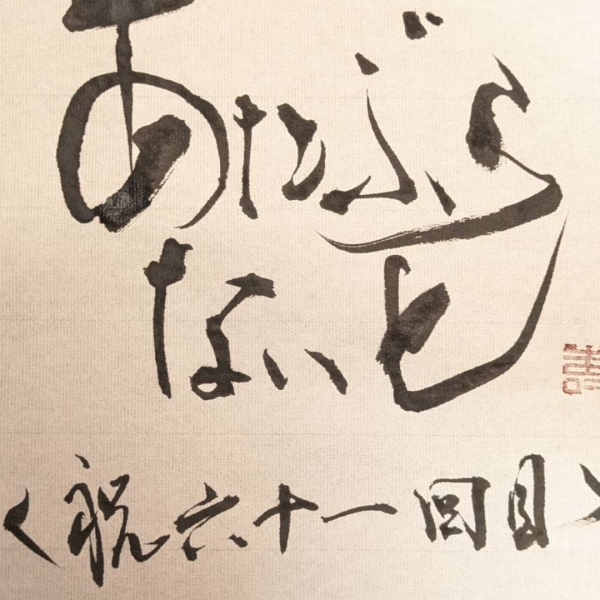 あたぶら
ないと
〈祝六十一回目〉